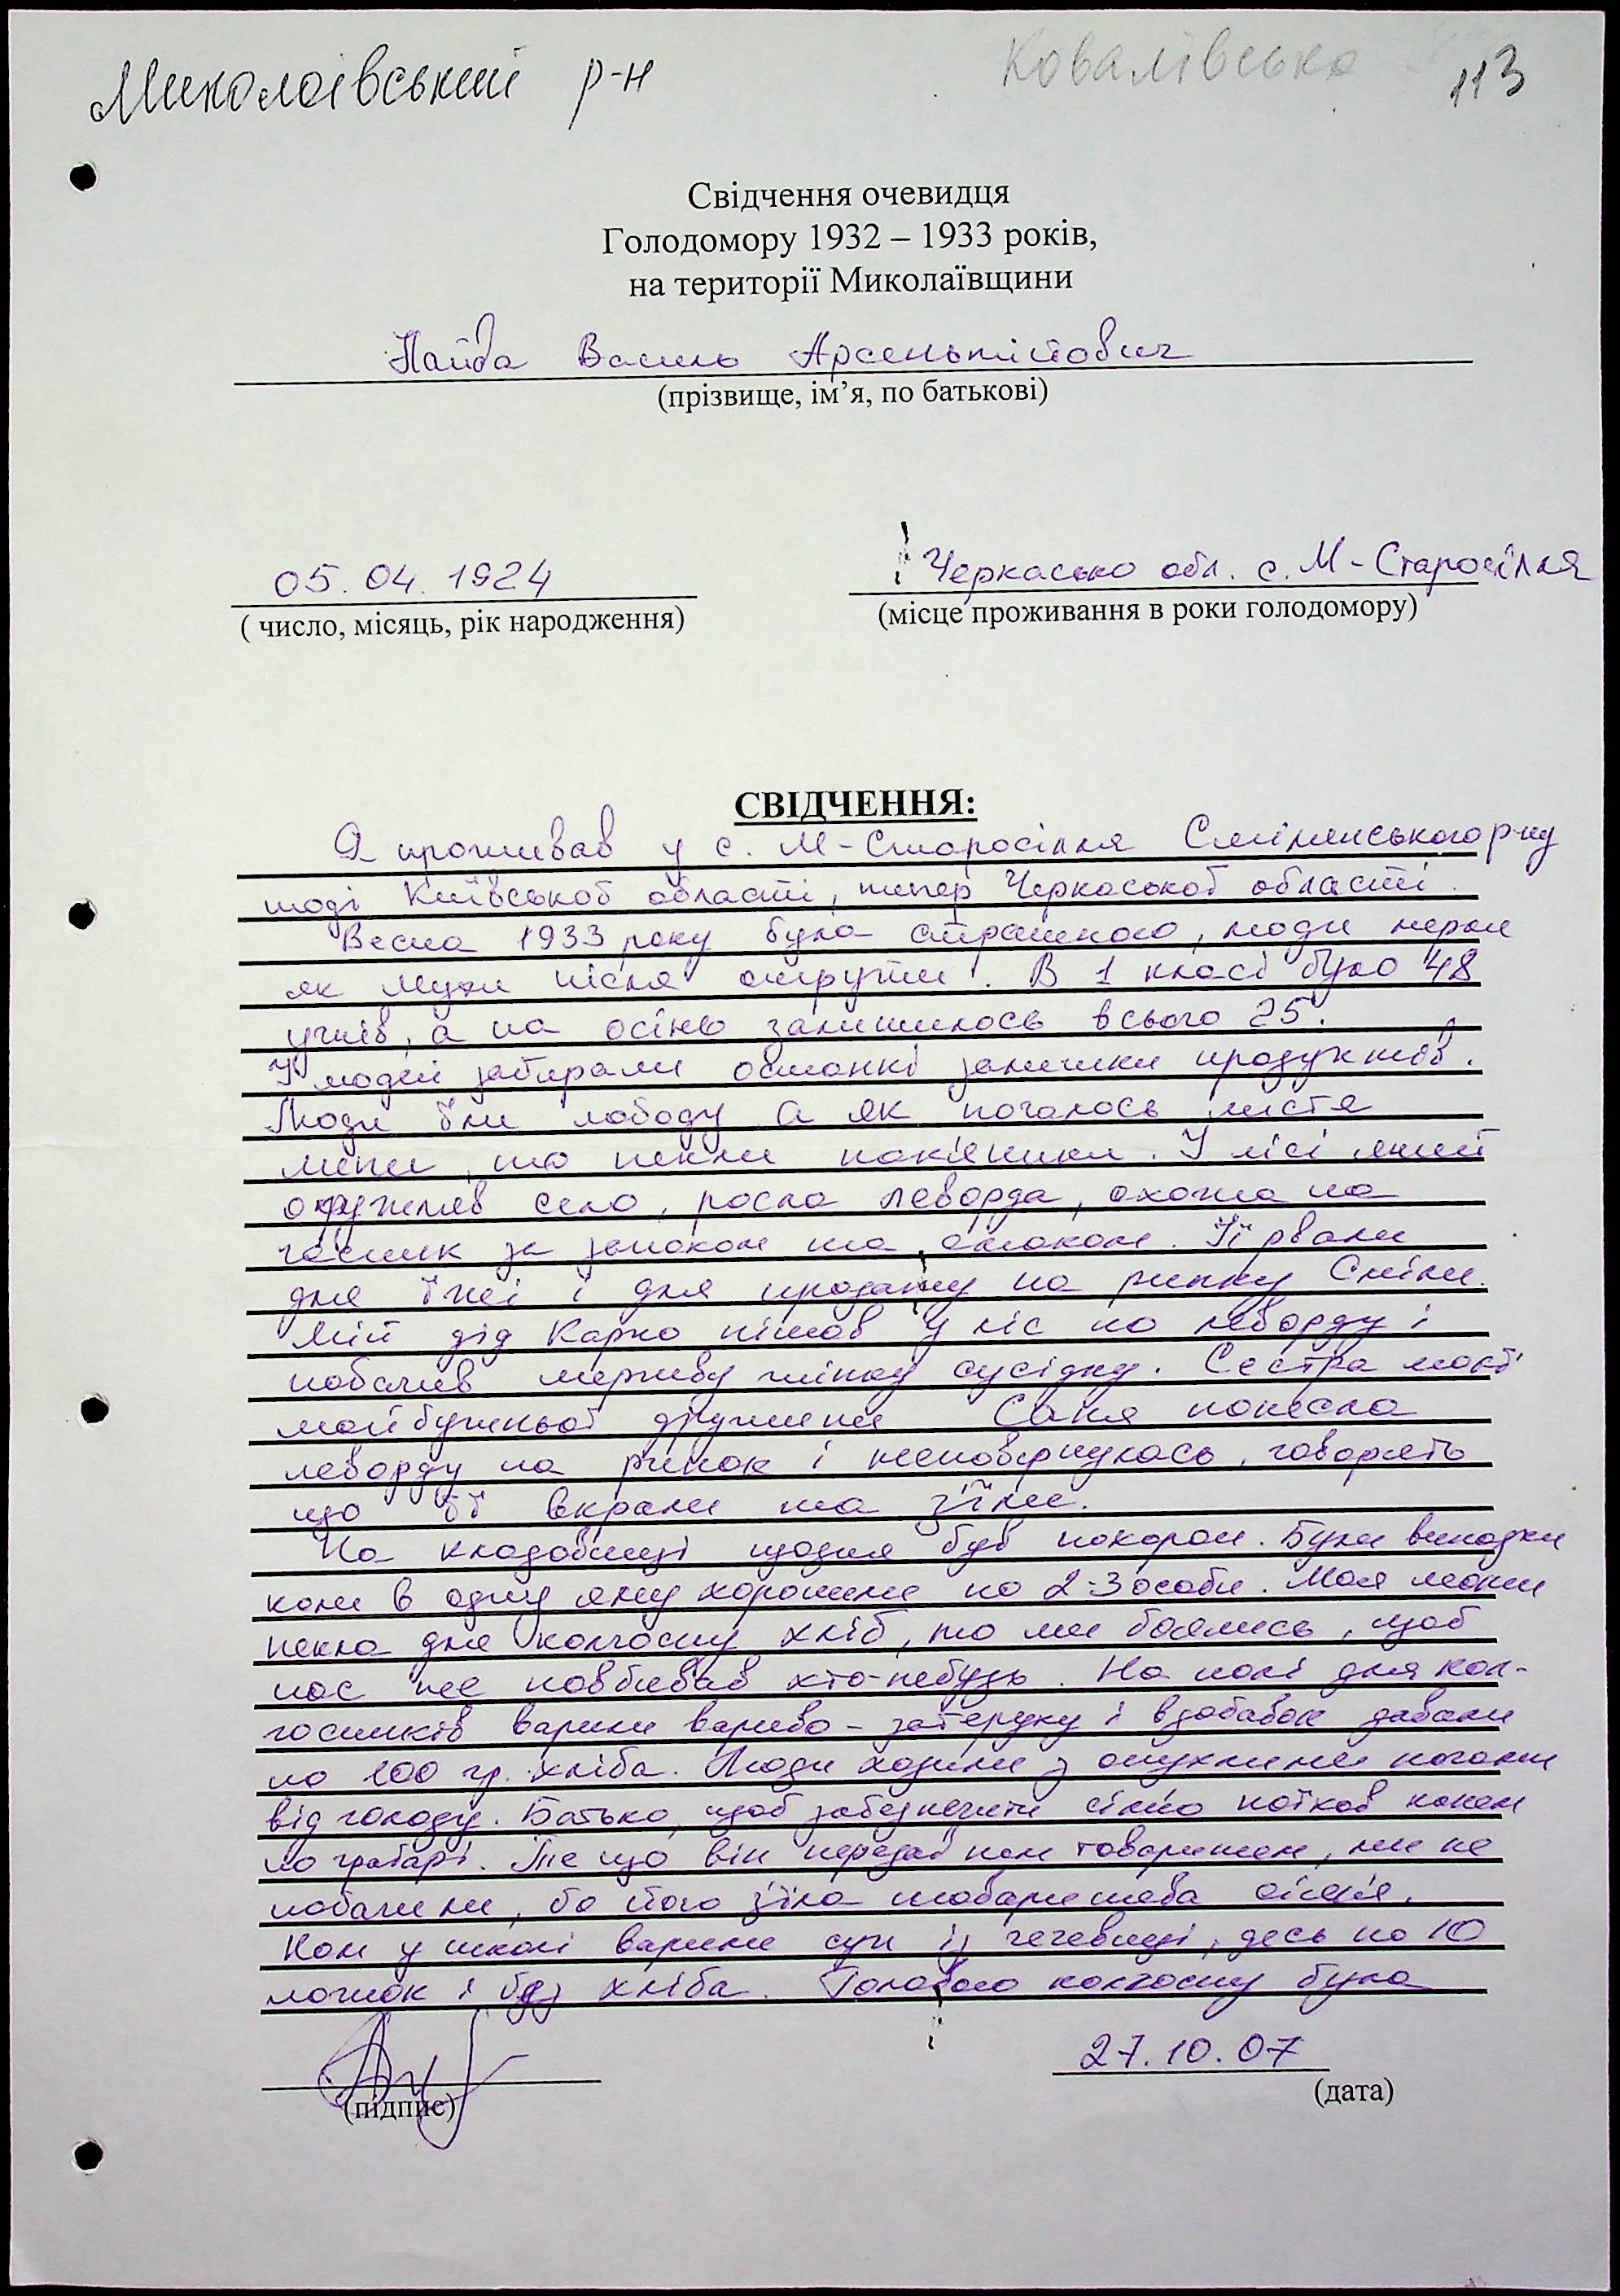 Миколаївський р-н
Ковалівська 113
Свідчення очевидця
Голодомору 1932 – 1933 років,
на території Миколаївщини
Найда Василь Арсентійович
(прізвище, ім’я, по батькові)
05. 04. 1924
Черкасько обл. с. М-Старосілля
( число, місяць, рік народження)
(місце проживання в роки голодомору)
СВІДЧЕННЯ:
Я проживав у с. М-Старосілля Смілянського р-ну
тоді Київської області, тепер Черкаської області.
Весна 1933 року була страшною, люди мерли
як мухи після отрути. В 1 класі було 48
учнів, а на осінь залишилось всього 25.
У людей забирали останні залишки продуктів.
Люди їли лободу а як почалось листя
липи, то пекли
У лісі який
окружляв село, росла леворда, схожа на
часник за запахом та смаком. Її рвали
для їжі і для продажу на ринку Сміли.
Мій дід Карпо пішов у ліс по леворду і
побачив мертву жінку сусідку. Сестра моєї
майбутньої дружини Саня понесла
леворду на ринок і неповернулась, говорять
що її вкрали та з'їли.
На кладовищі щодня був похорон. Були випадки
коли в одну яму хоронили по 2-3 особи. Моя мати
пекла для колгоспу хліб, то ми боялись, щоб
нас не повбивав хто-небудь. На полі для кол-
госпників варили варево - затерику і вдобавок давали
по 100 гр. хліба. Люди ходили з опухлими ногами
від голоду. Батько, щоб забезпечити сім'ю поїхав конем
по грабарі. Те що він передав нам товаришем, ми не
побачили, бо його з'їла товаришева сім'я.
Нам у школі варили суп із чечевиці, десь по 10
ложок і без хліба. Головою колгоспу була
27.10.07
(підпис)
(дата)